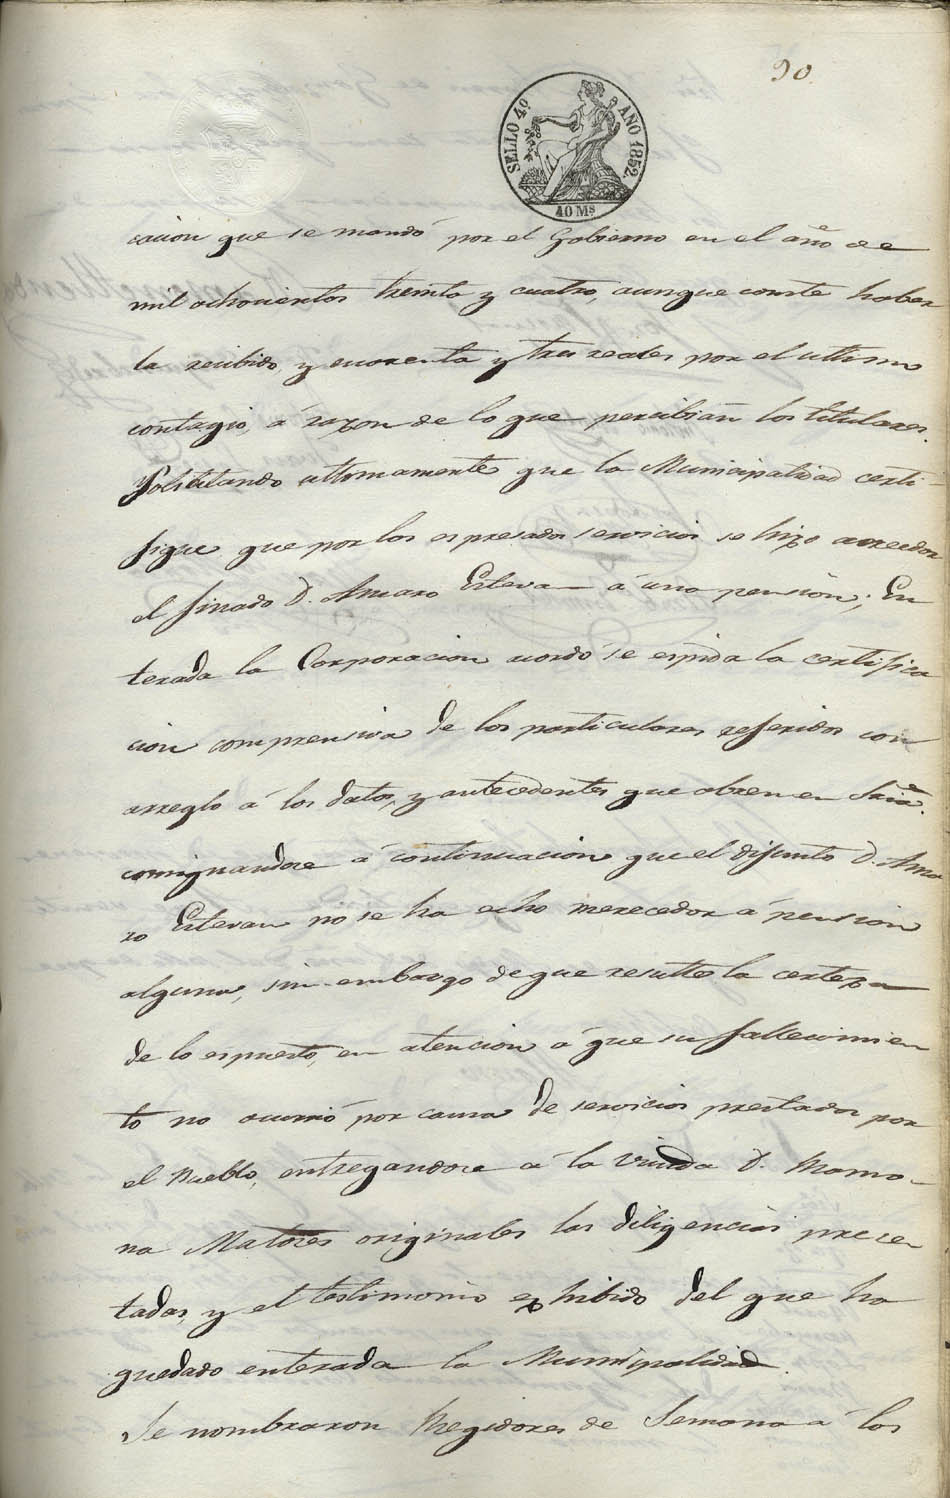 90
SELLO 4º AÑO 1852.
40 Ms
cacion que se mandó por el Gobierno en el año de
mil ochocientos treinta y cuatro, aunque conste haber
la recibido, y cuarenta y tres reales por el ultimo
contagio, á razon de lo que percibian los titulares.
Solicitando ultimamente que la Municipalidad certi-
fique que por los espresados servicios se hizo acreedor
el finado D. Amaro Estevan á una pension; En
terada la Corporacion acordó se espida la certifica
cion comprensiva de los particulares referidos con
arreglo á los datos, y antecedentes que obren en Sria.
consignandose á continuacion que el difunto D. Ama
ro Estevan no se ha echo merecedor á pension
alguna, sin embargo de que resulte la certeza
de lo espuesto, en atencion á que su fallecimien
to no ocurrió por causa de servicios prestados por
el Pueblo, entregandose á la viuda D. Mamo-
na Matores originales las diligencias presen
tadas, y el testimonio exhibido del que ha
quedado enterada la Municipalidad.
Se nombraron Regidores de Semana á los